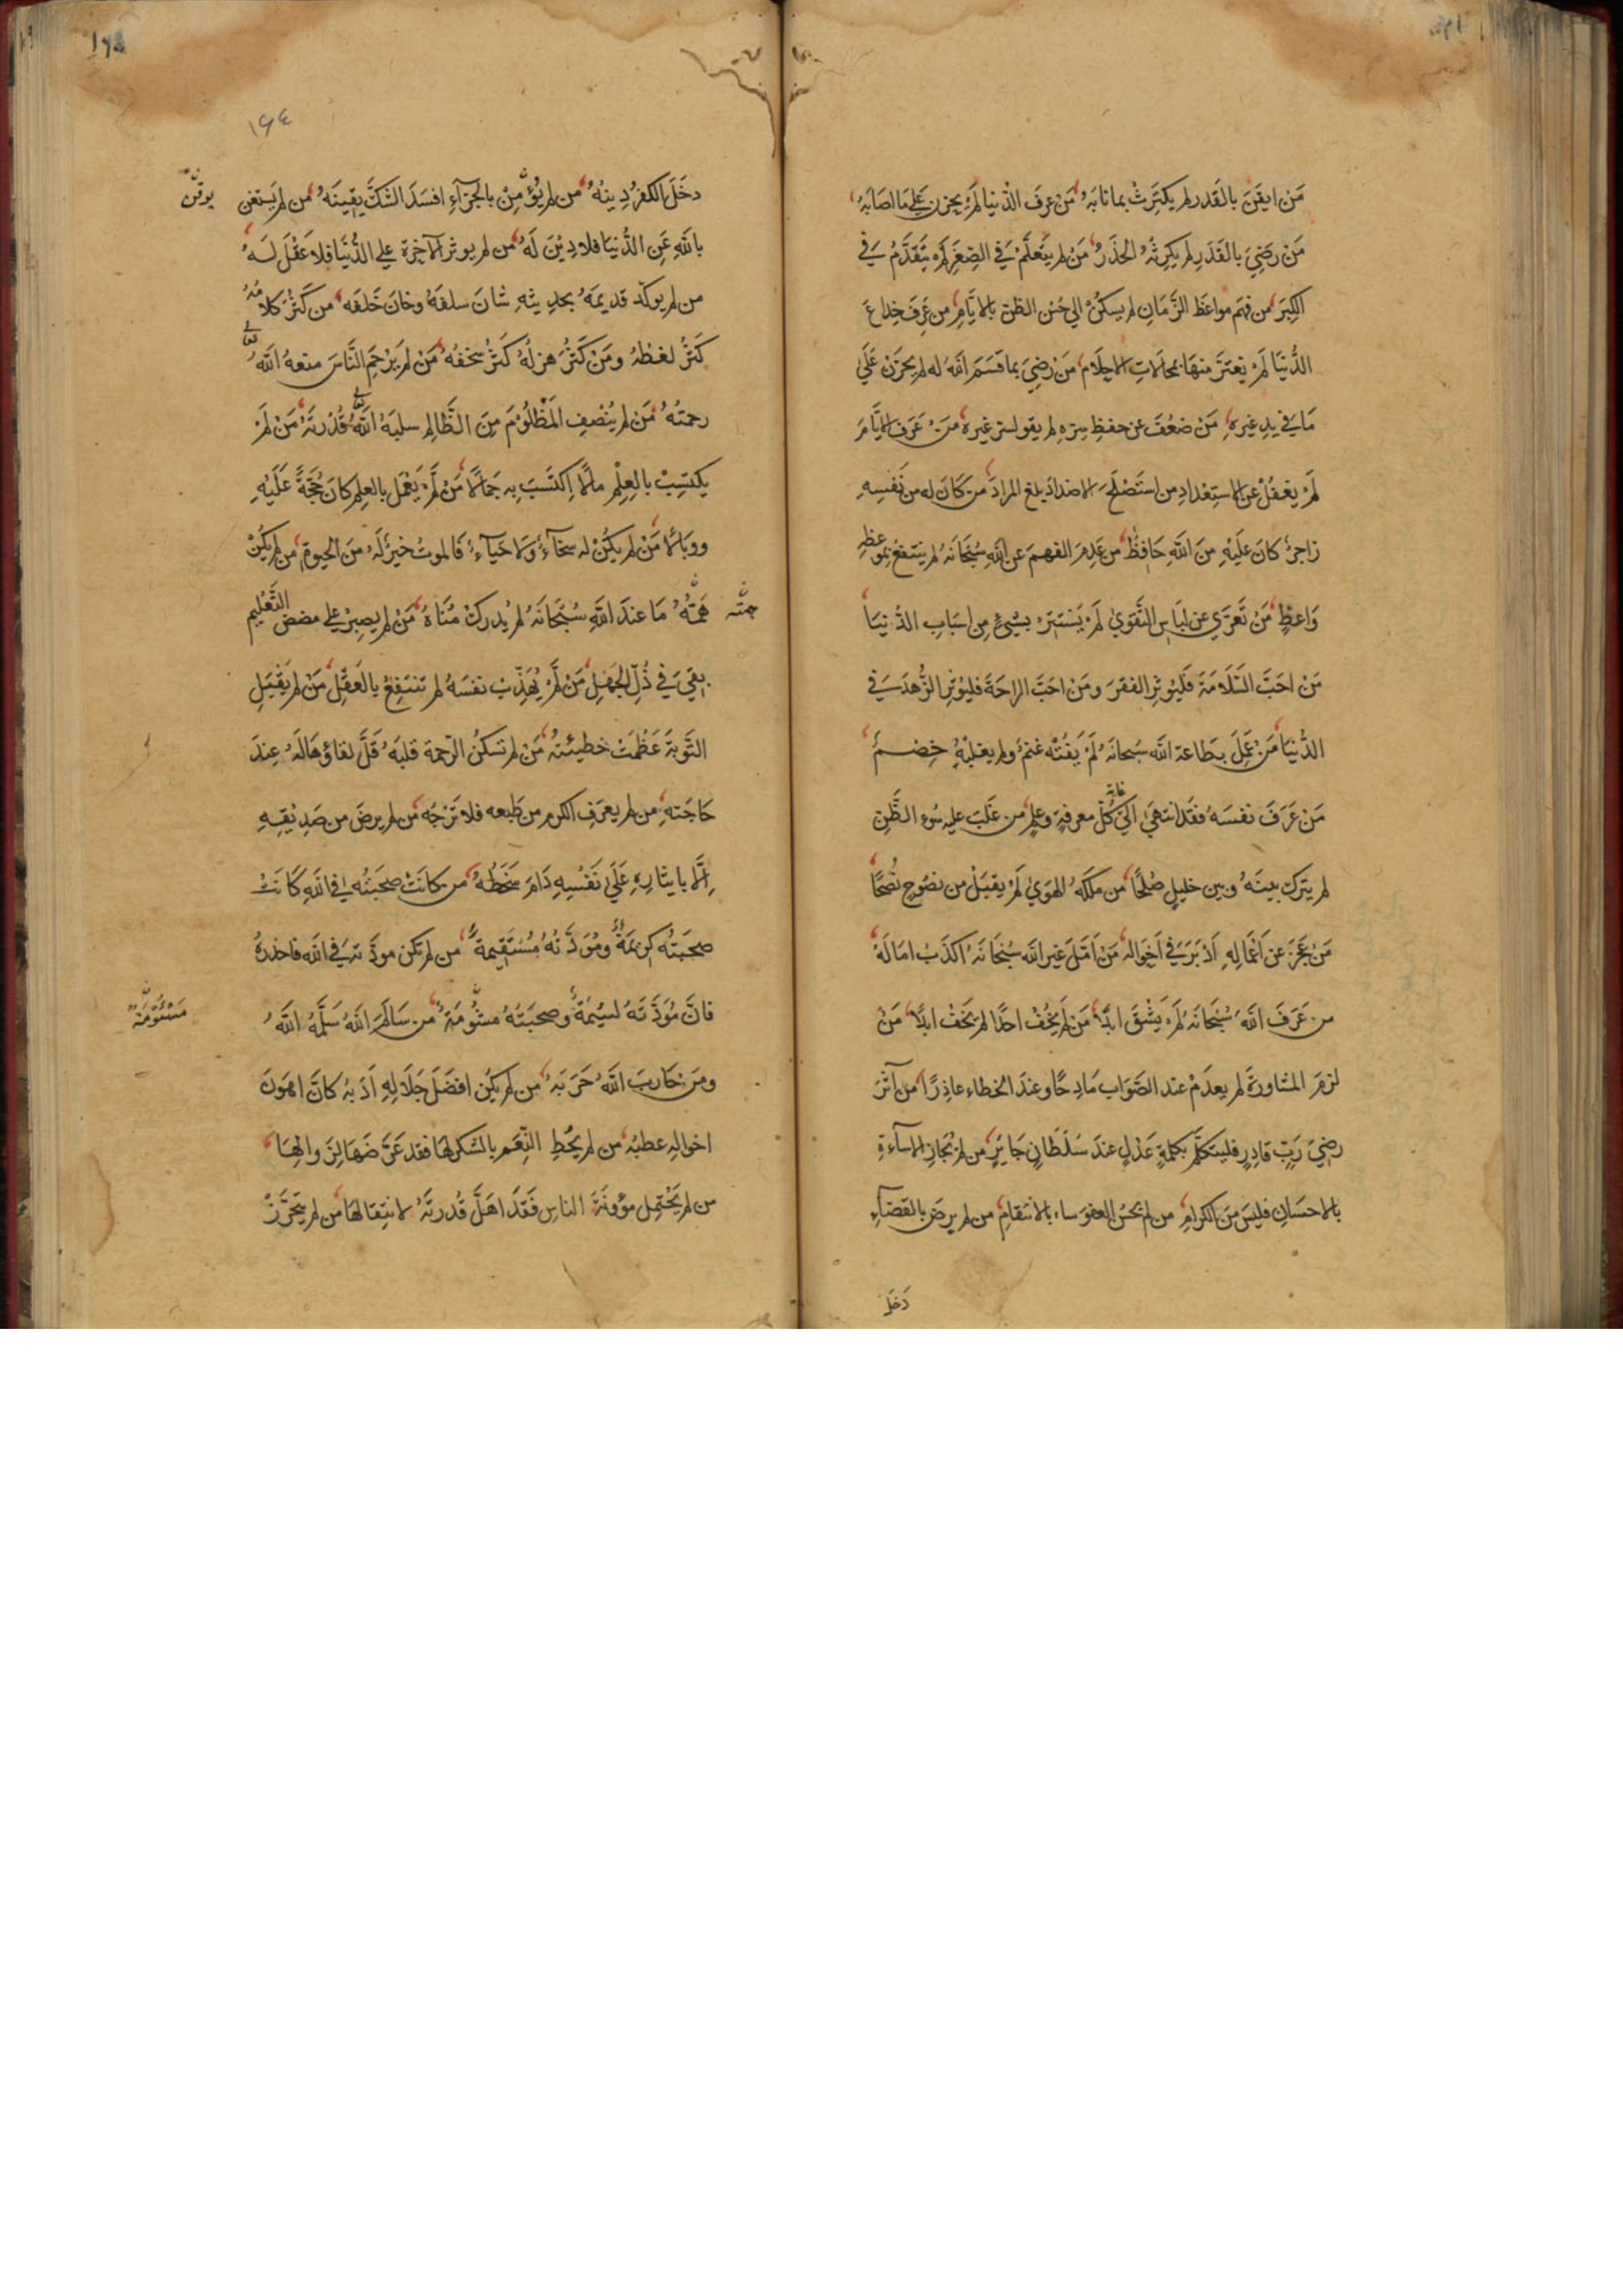 مَنْ ايقَنَ بالقَدر لم يكتَرِثْ بما نابَهُ مَنْ عرفَ الدّنيا لَمْ يحزن عَلي مَا اصَابَهُ
مَنْ رَضِيَ بالقَدَرِ لم يكرِثْهُ الحَذَرُ مَنْ لم يتَعلَّمْ في الصِغَرِ لَمْ يتَقدَّمْ في
الكِبَرِ من فهَم مواعظَ الزَّمَانِ لم يسكُنْ الي حُسْنِ الظنّ بالايّامِ من عَرفَ خِداعَ
الدُّنيَا لَمْ يغترَّ منهَا بمحالَاتِ الاحلَام مَنْ رَضِيَ بما قسَمَ اللهُ له لم يحزَنْ عَلَي
مَا في يدِ غيرهِ مَنْ ضعُفَ عن حفظِ سِرّهِ لم يقو لسرّ غيرهِ مَنْ عَرَفَ الايَّامَ
لَمْ يغفُلْ عن الاستِعْدادِ من استَصْلَحَ الاضدادَ بلغَ المرادَ من كَانَ له من نَفْسِهِ
زاجرٌ كانَ عَليْهِ مِنَ اللهِ حَافِظٌ من عَدِمَ الفهمَ عن اللهِ سُبْحَانَهُ لم ينتفعْ بموعظةِ
وَاعظٍ مَنْ تَعَرَّي عن لبَاسِ التَّقوَيٰ لَمْ يَسْتَتِرْ بشيءٍ من اسْبَابِ الدُّنيَا
مَنْ احَبَّ السَّلَامَةَ فَليُوثِرِ الفَقرَ ومَنْ احَبَّ الراحَةَ فليُؤثِرِ الزُّهدَ في
الدُّنيَا مَنْ عَمِلَ بطَاعة الله سَبحانَهُ لَمْ يَفُتْه غنمٌ ولم يغلبْهُ خِضمٌ
مَنْ عَرَفَ نفسَهُ فقَدْ انتهيَ الي غاية كُلّ معرفةٍ وعلمٍ من غَلَبَ عليه سُوء الظَّنِ
لم يترك بينَهُ وبين خليلٍ صُلحًا من ملكَهُ الهَوَيٰ لَمْ يقبَلْ من نصُوحٍ نُصْحًا
مَنْ عَجَزَ عن اعْمَالِهِ اَدْبَرَ في اَحْوالهِ مَنْ اَمَّلَ غيرَ الله سُبْحَانَهُ اكذَبَ امَالَهُ
من عَرَفَ اللهَ سُبْحَانَهُ لَمْ يَشْقَ ابدًا مَنْ لَمْ يَخُفْ احدًا لم يَخَفْ ابدًا مَنْ
لزمَ المشاورةَ لم يعدَمْ عند الصَّوَاب مَادِحًا وعندَ الخطاءِ عاذِرًا من آثَرَ
رضيَ رَبٍّ قادِرٍ فليتكلّم بكلمةِ عَدْلٍ عندَ سُلْطَانٍ جَايرٍ من لم يُجَازِ الاسآءةَ
بالاحسَانِ فليسَ منَ الكرامِ من لم يحسُن العفوَ ساءَ بالانتقامِ من لم يرضَ بالقضآءِ
دَخَلَ
١٦٤
دخَلَ الكفرُ دِينَهُ من لم يُؤمِنْ بالجزَآءِ افسَدَ الشكُّ يقِينَهُ من لم يَستغنِ
يوقن
باللهِ عَنِ الدُّنيَا فلا دِيْنَ لَهُ من لم يوثر الآخِرة علي الدُّنيَا فلا عَقْلَ لَهُ
من لم يوكّد قديمَهُ بحدِيثهِ شانَ سلفَهُ وخانَ خَلفَه من كَثُرَ كلامُهُ
كَثُرَ لغطهُ ومَنْ كَثُرَ هزلهُ كَثُرَ سخفُهُ مَنْ لم يَرْحَمِ النَّاسَ منعهُ اللهُ تعالى
رحمتَهُ مَن لم يُنْصِفِ المَظْلُوْمَ مِنَ الظَّالِمِ سلبَهُ اللهُ تعالى قُدْرتَهُ مَنْ لَمْ
يكتَسِبْ بالعِلْمِ مالًا اكتَسَبَ بِهِ جَمَالًا مَنْ لَمْ يَعْمَل بالعِلم كانَ حُجَّةً عَلَيْهِ
ووبَالًا مَنْ لم يكُنْ له سخاءٌ ولا حَيَآءٌ فَالموتُ خيرٌ لَهُ منَ الحيوةِ من لم يكُنْ
همَّتُهُ مَا عندَ اللهِ سُبْحَانَهُ لم يُدركْ مُنَاهُ مَنْ لم يصبِرْ علي مضضِ التَّعْليمِ
همّته
بقيَ في ذُلّ الجَهْلِ مَنْ لَمْ يُهذّبْ نفسَهُ لم تنتفعْ بالعَقْلِ مَنْ لم يَقْبَلِ
التَّوبَةَ عَظُمَتْ خطيئتهُ مَنْ لم تسكُنُ الرّحمة قلبَهُ قَلَّ لقاؤهَا لَهُ عِندَ
حَاجَتِهِ من لم يعرَفِ الكرم من طَبعه فلا تَرْجُهُ من لم يرضَ من صَدِيْقِهِ
اِلّا بايثارِهِ عَلَيٰ نَفْسِهِ دَامَ سَخَطُهُ من كانتْ صحبَتُه في اللهِ كَانَتْ
صحبَتُه كريمَةً ومُوَدَّتُهُ مُسْتَقِيمةً من لم تكن مودَّتهَ في الله فاحذرهُ
فانَّ مُوَدَّتَهُ لئيمَةٌ وصحبَتُهُ مشُومَةٌ من سَالَمَ اللهَ سَلَّمَهُ اللهُ
مَشْئُومَةٌ
ومَن حَارَبَ اللهَ حَرَبَهُ من لم يكن افضَلَ خِلَالِهِ اَدَبهُ كَانَ اهوَنَ
احوالهِ عطبُه من لم يُحُطِ النِّعَمَ بالشكر لهَا فقد عَرَّضَهَا لِزَوالِهَا
من لم يَحْتَمِل مؤونَةَ الناس فَقَدْ اهَلَّ قُدرتَهُ لانتِقالهَا من لم يتَحَرَّزْ